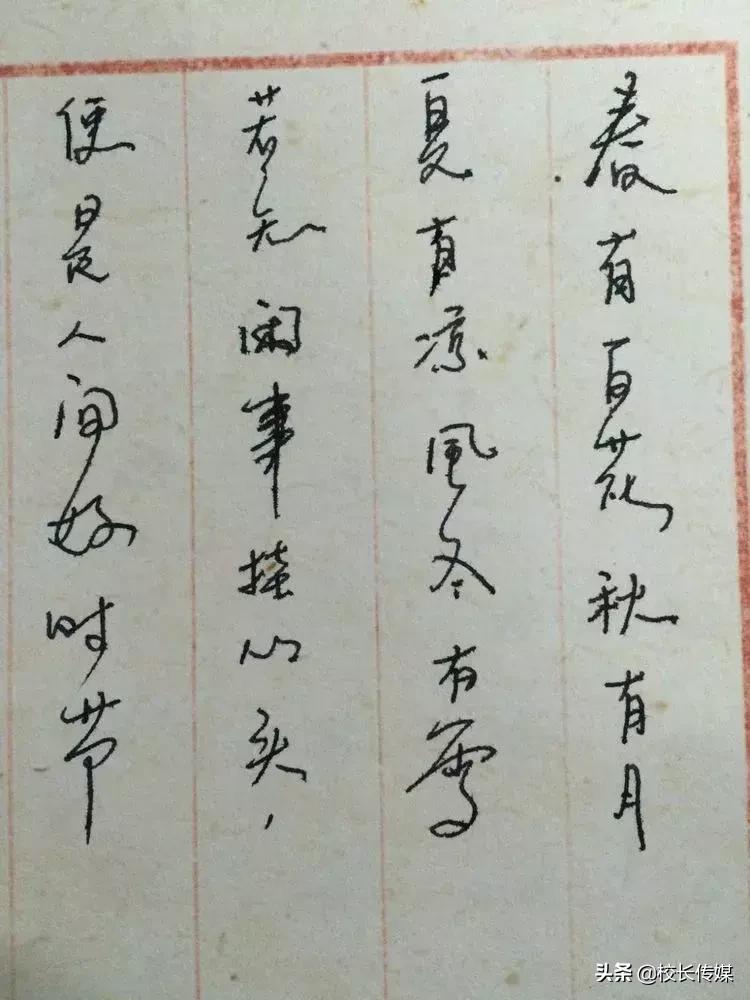 春有百花秋有月
夏有凉風冬有雪
若无闲事挂心头，
便是人间好时节
头条 @校长传媒